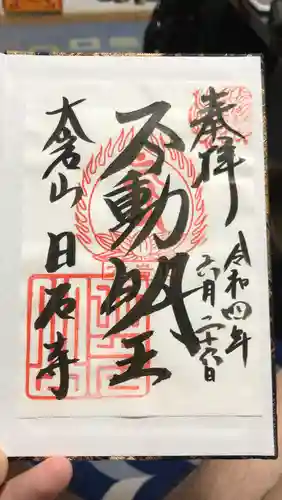 奉拝
令和四年
六月
不動明王
大岩山
日石寺